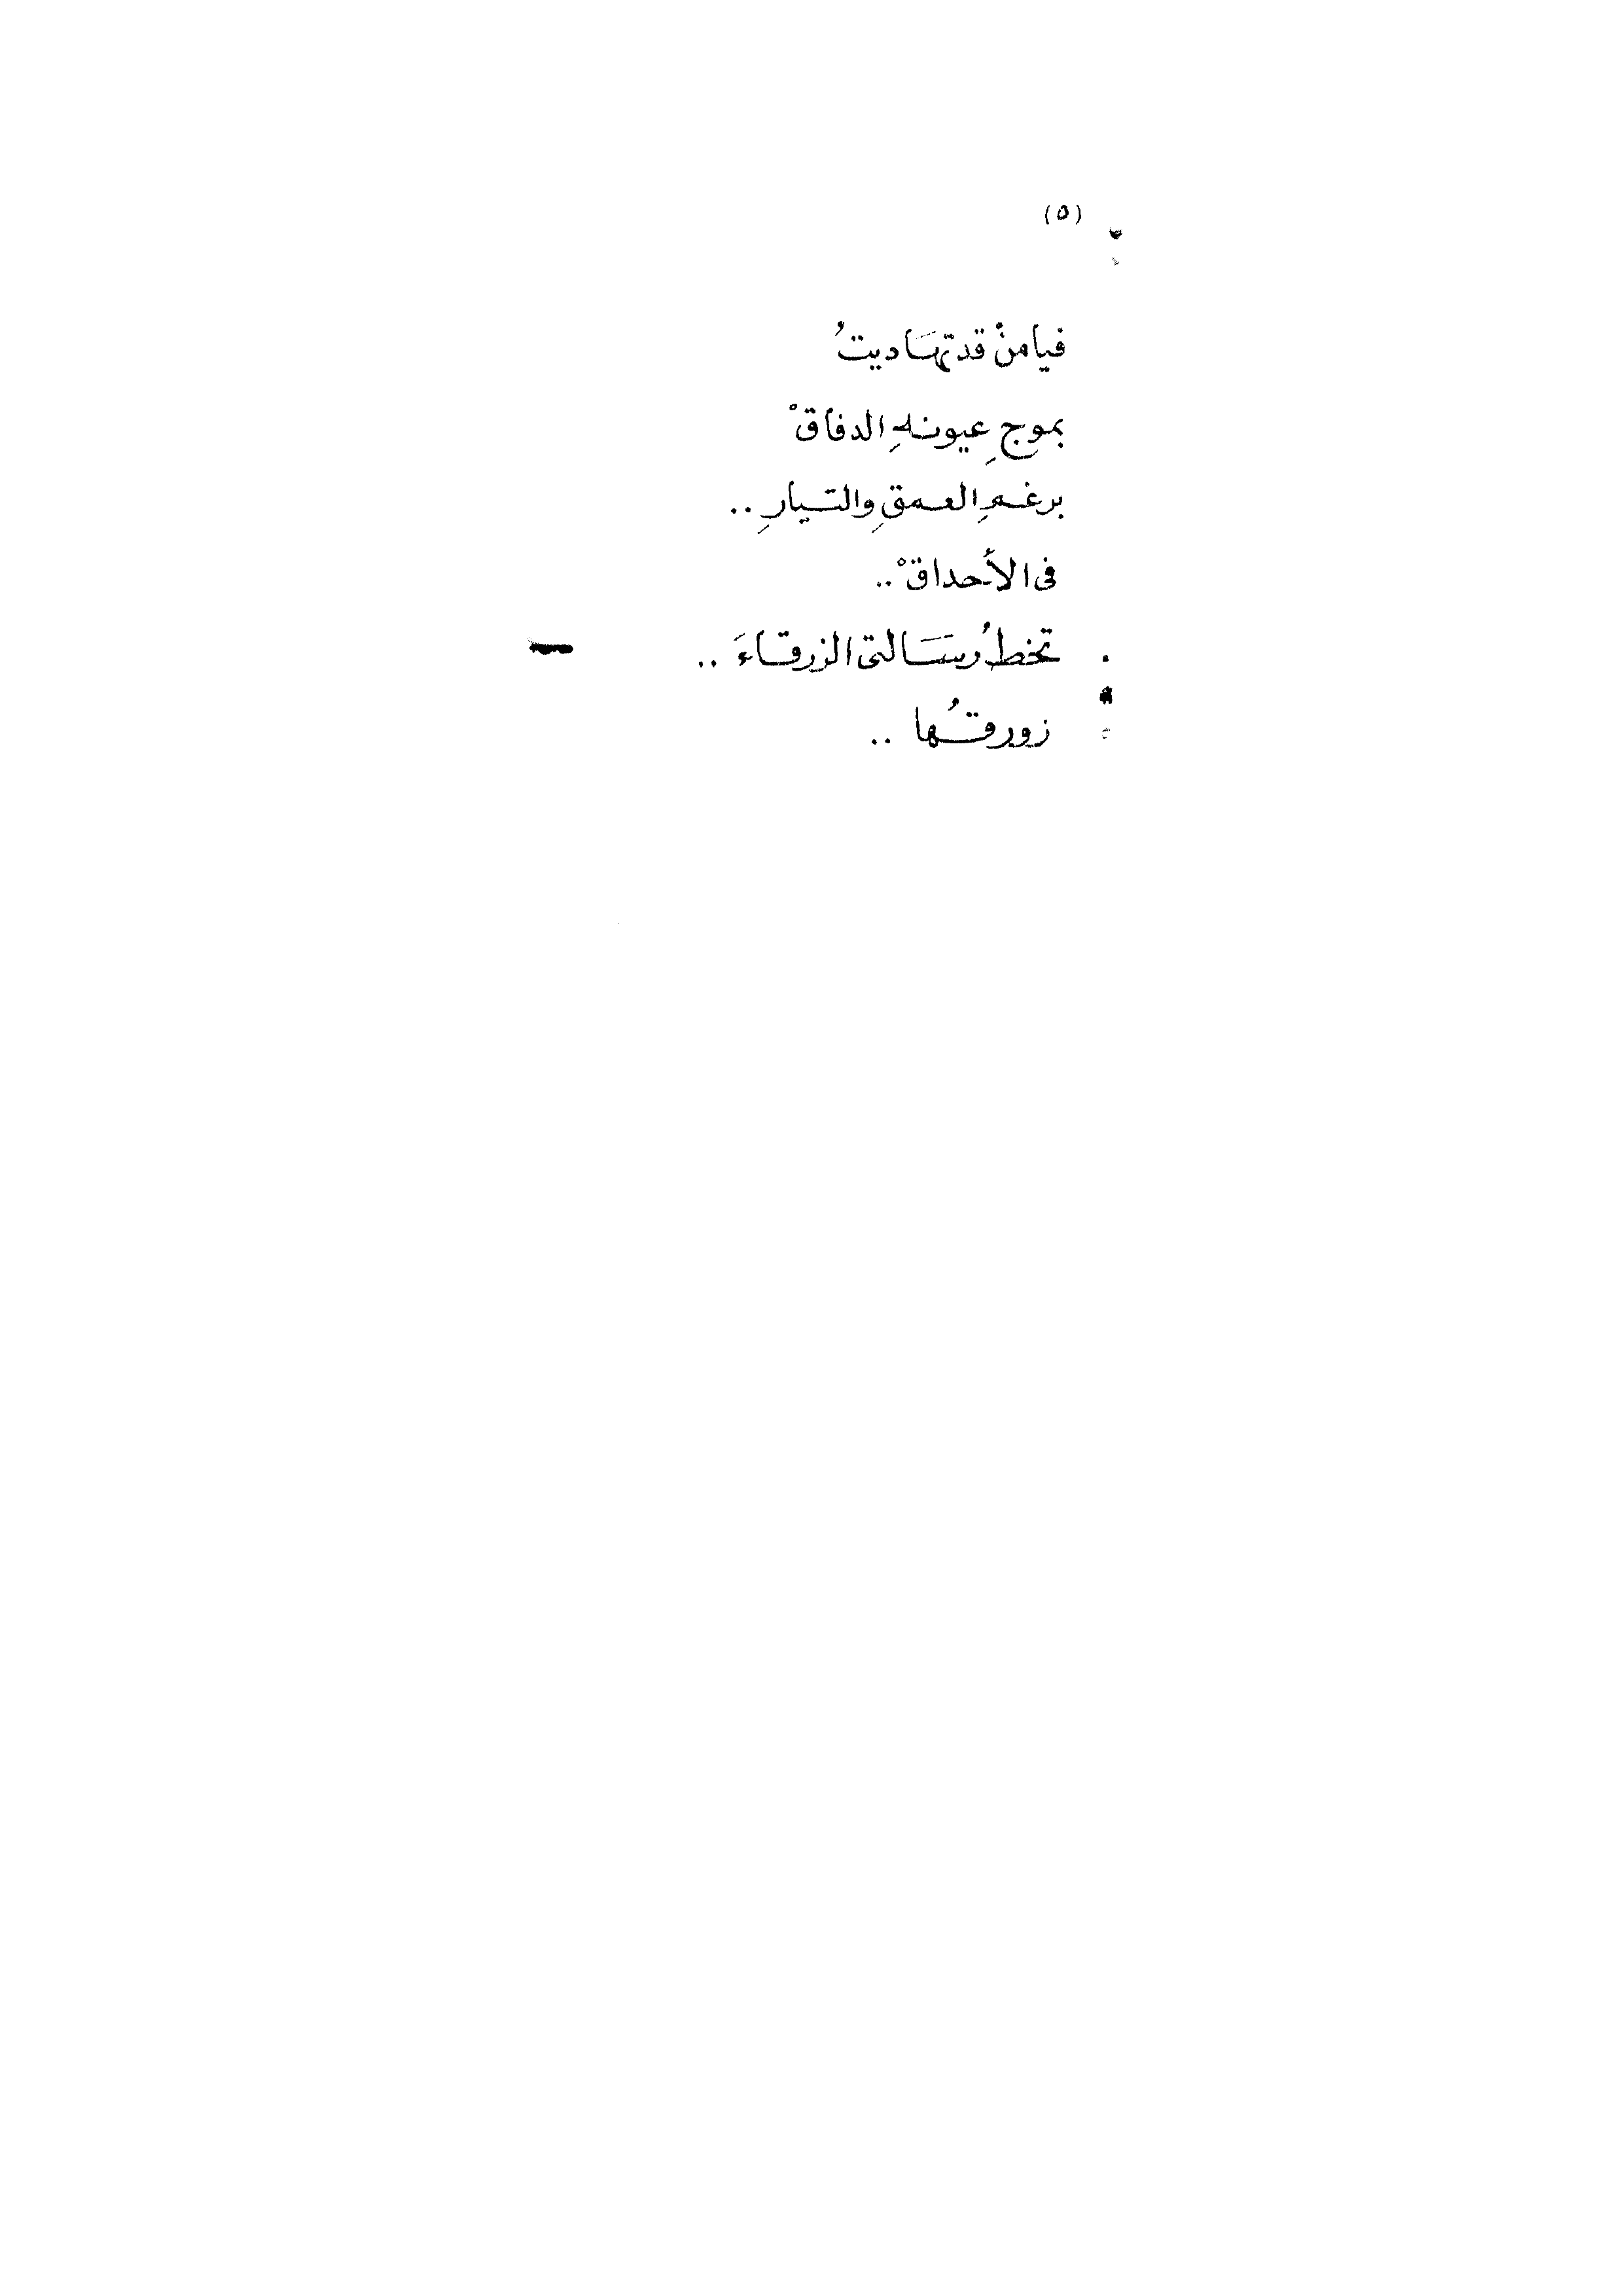 (٥)
فيا منْ قد تهَاديتُ
بموجِ عيونهِ الدفاقْ
برغمِ العمقِ والتيارِ ..
فى الأحداقْ ..
تخطُ رسَالتى الزرقاءَ ..
زورقُها ..